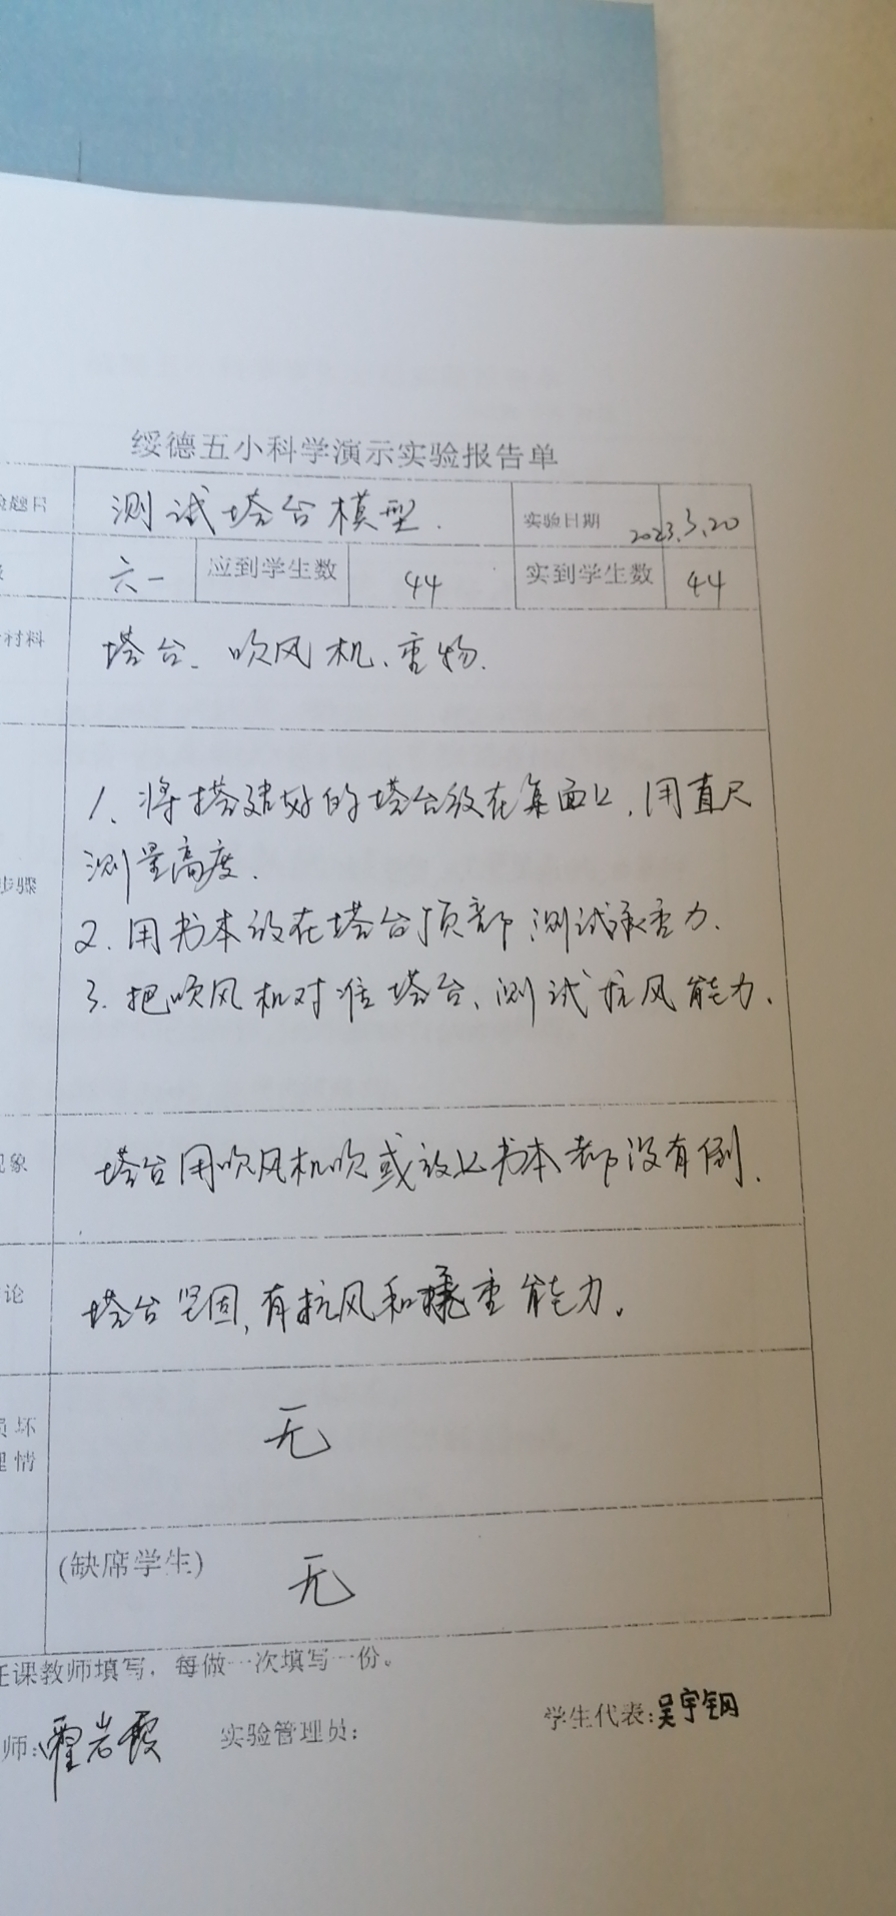 绥德五小科学演示实验报告单
验题目 测试塔台模型. 实验日期 2023.3.20
级 六一 应到学生数 44 实到学生数 44
材料 塔台、吹风机、重物.
1、将搭建好的塔台放在桌面上,用直尺
测量高度.
步骤
2.用书本放在塔台顶部测试承重力.
3.把吹风机对准塔台、测试抗风能力、
现象 塔台用吹风机吹或放上书本都没有倒.
论 塔台坚固,有抗风和承重能力。
损坏 无
理情
(缺席学生) 无
任课教师填写,每做一次填写一份。
师:霍岩霞 实验管理员: 学生代表:吴宇钢